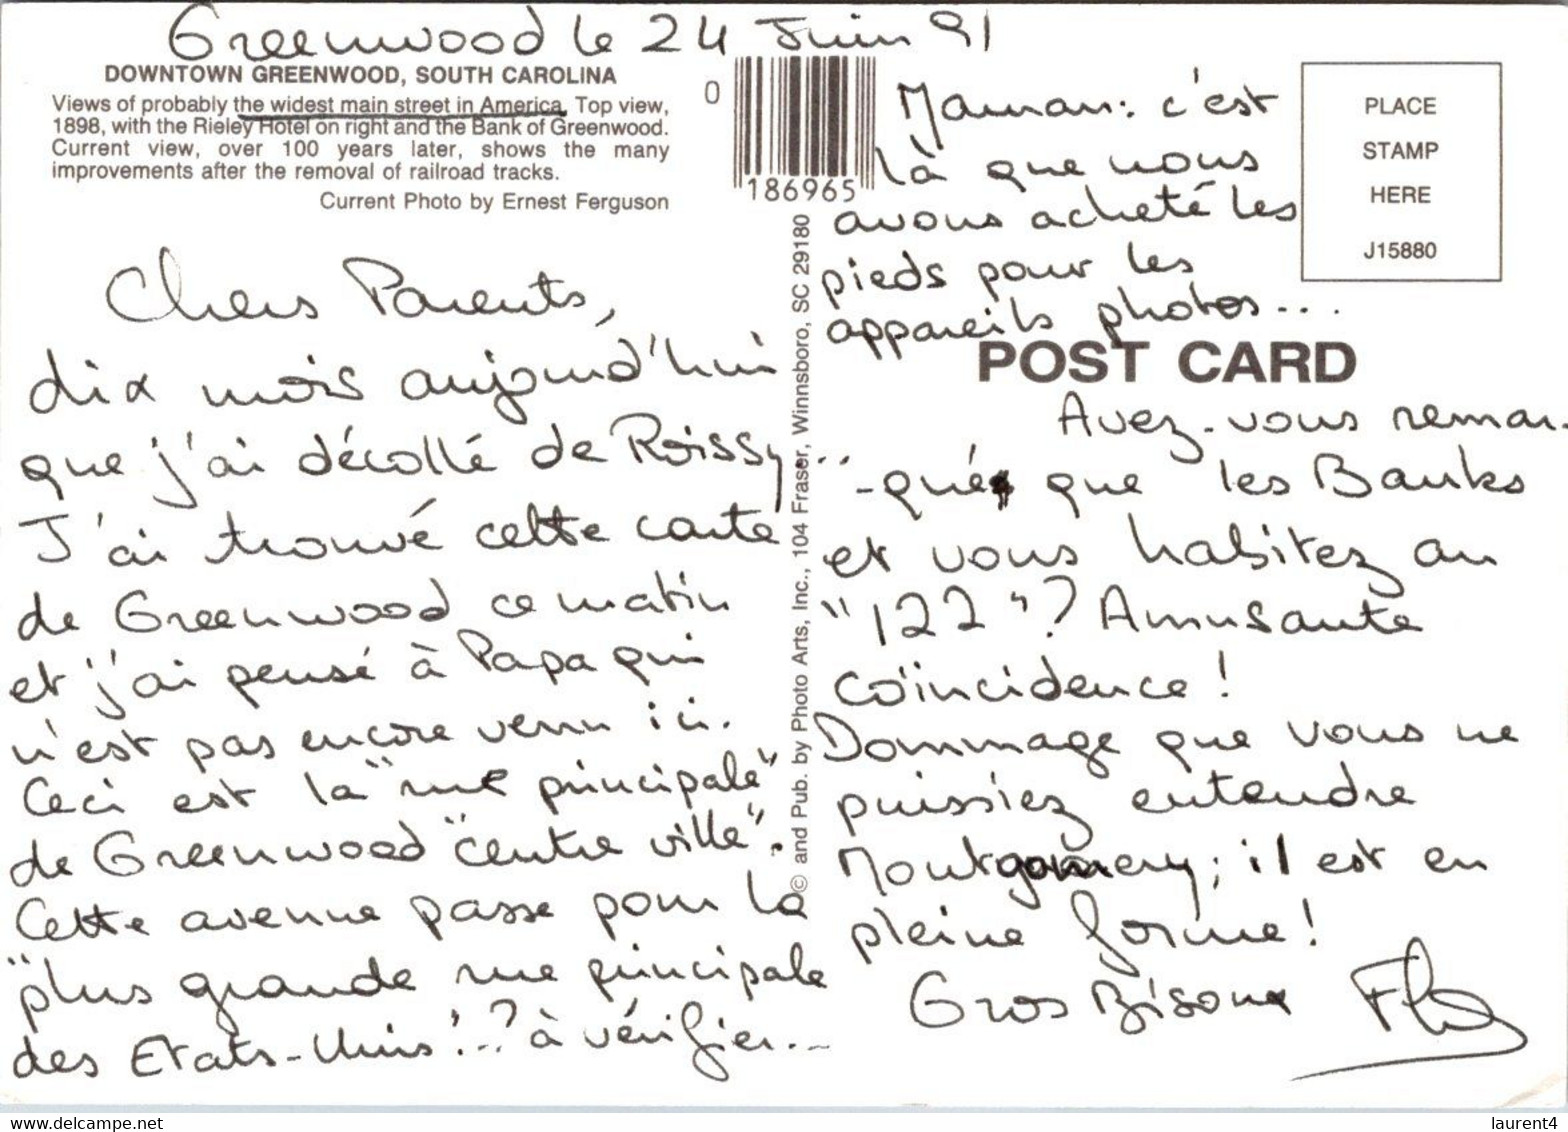 Greenwood le 24 Juin 91
DOWNTOWN GREENWOOD, SOUTH CAROLINA
Views of probably the widest main street in America. Top view,
1898, with the Rieley Hotel on right and the Bank of Greenwood.
Current view, over 100 years later, shows the many
improvements after the removal of railroad tracks.
Current Photo by Ernest Ferguson
Chers Parents,
dix mois aujourd'hui
que j'ai décollé de Roissy...
J'ai trouvé cette carte
de Greenwood ce matin
et j'ai pensé à Papa qui
n'est pas encore venu ici.
Ceci est la "rue principale"
de Greenwood "centre ville".
Cette avenue passe pour la
"plus grande rue principale
des Etats-Unis!..? à vérifier...
0
186965
© and Pub. by Photo Arts, Inc., 104 Fraser, Winnsboro, SC 29180
Maman: c'est
là que nous
avons acheté les
pieds pour les
appareils photos...
PLACE
STAMP
HERE
J15880
POST CARD
Avez-vous remar-
-qué que les Banks
et vous habitez au
"122"? Amusante
coïncidence!
Dommage que vous ne
puissiez entendre
Montgomery; il est en
pleine forme!
Gros Bisoux
laurent4